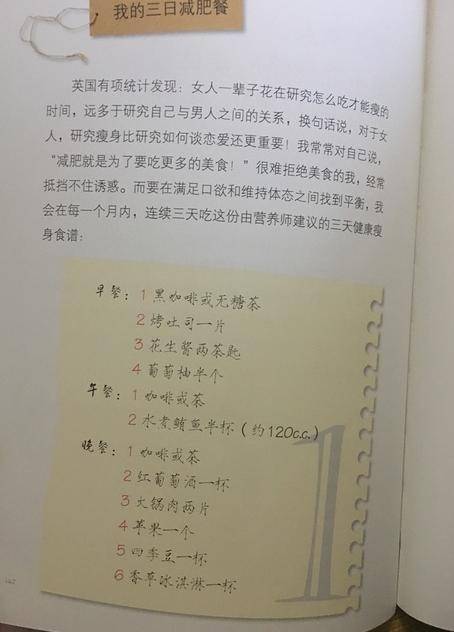 我的三日减肥餐
英国有项统计发现：女人一辈子花在研究怎么吃才能瘦的
时间，远多于研究自己与男人之间的关系，换句话说，对于女
人，研究瘦身比研究如何谈恋爱还更重要！我常常对自己说，
“减肥就是为了要吃更多的美食！”很难拒绝美食的我，经常
抵挡不住诱惑。而要在满足口欲和维持体态之间找到平衡，我
会在每一个月内，连续三天吃这份由营养师建议的三天健康瘦
身食谱：
早餐：1 黑咖啡或无糖茶
2 烤吐司一片
3 花生酱两茶匙
4 葡萄柚半个
午餐：1 咖啡或茶
2 水煮鲔鱼半杯（约120c.c.）
晚餐：1 咖啡或茶
2 红葡萄酒一杯
3 火锅肉两片
4 苹果一个
5 四季豆一杯
6 香草冰淇淋一杯
1